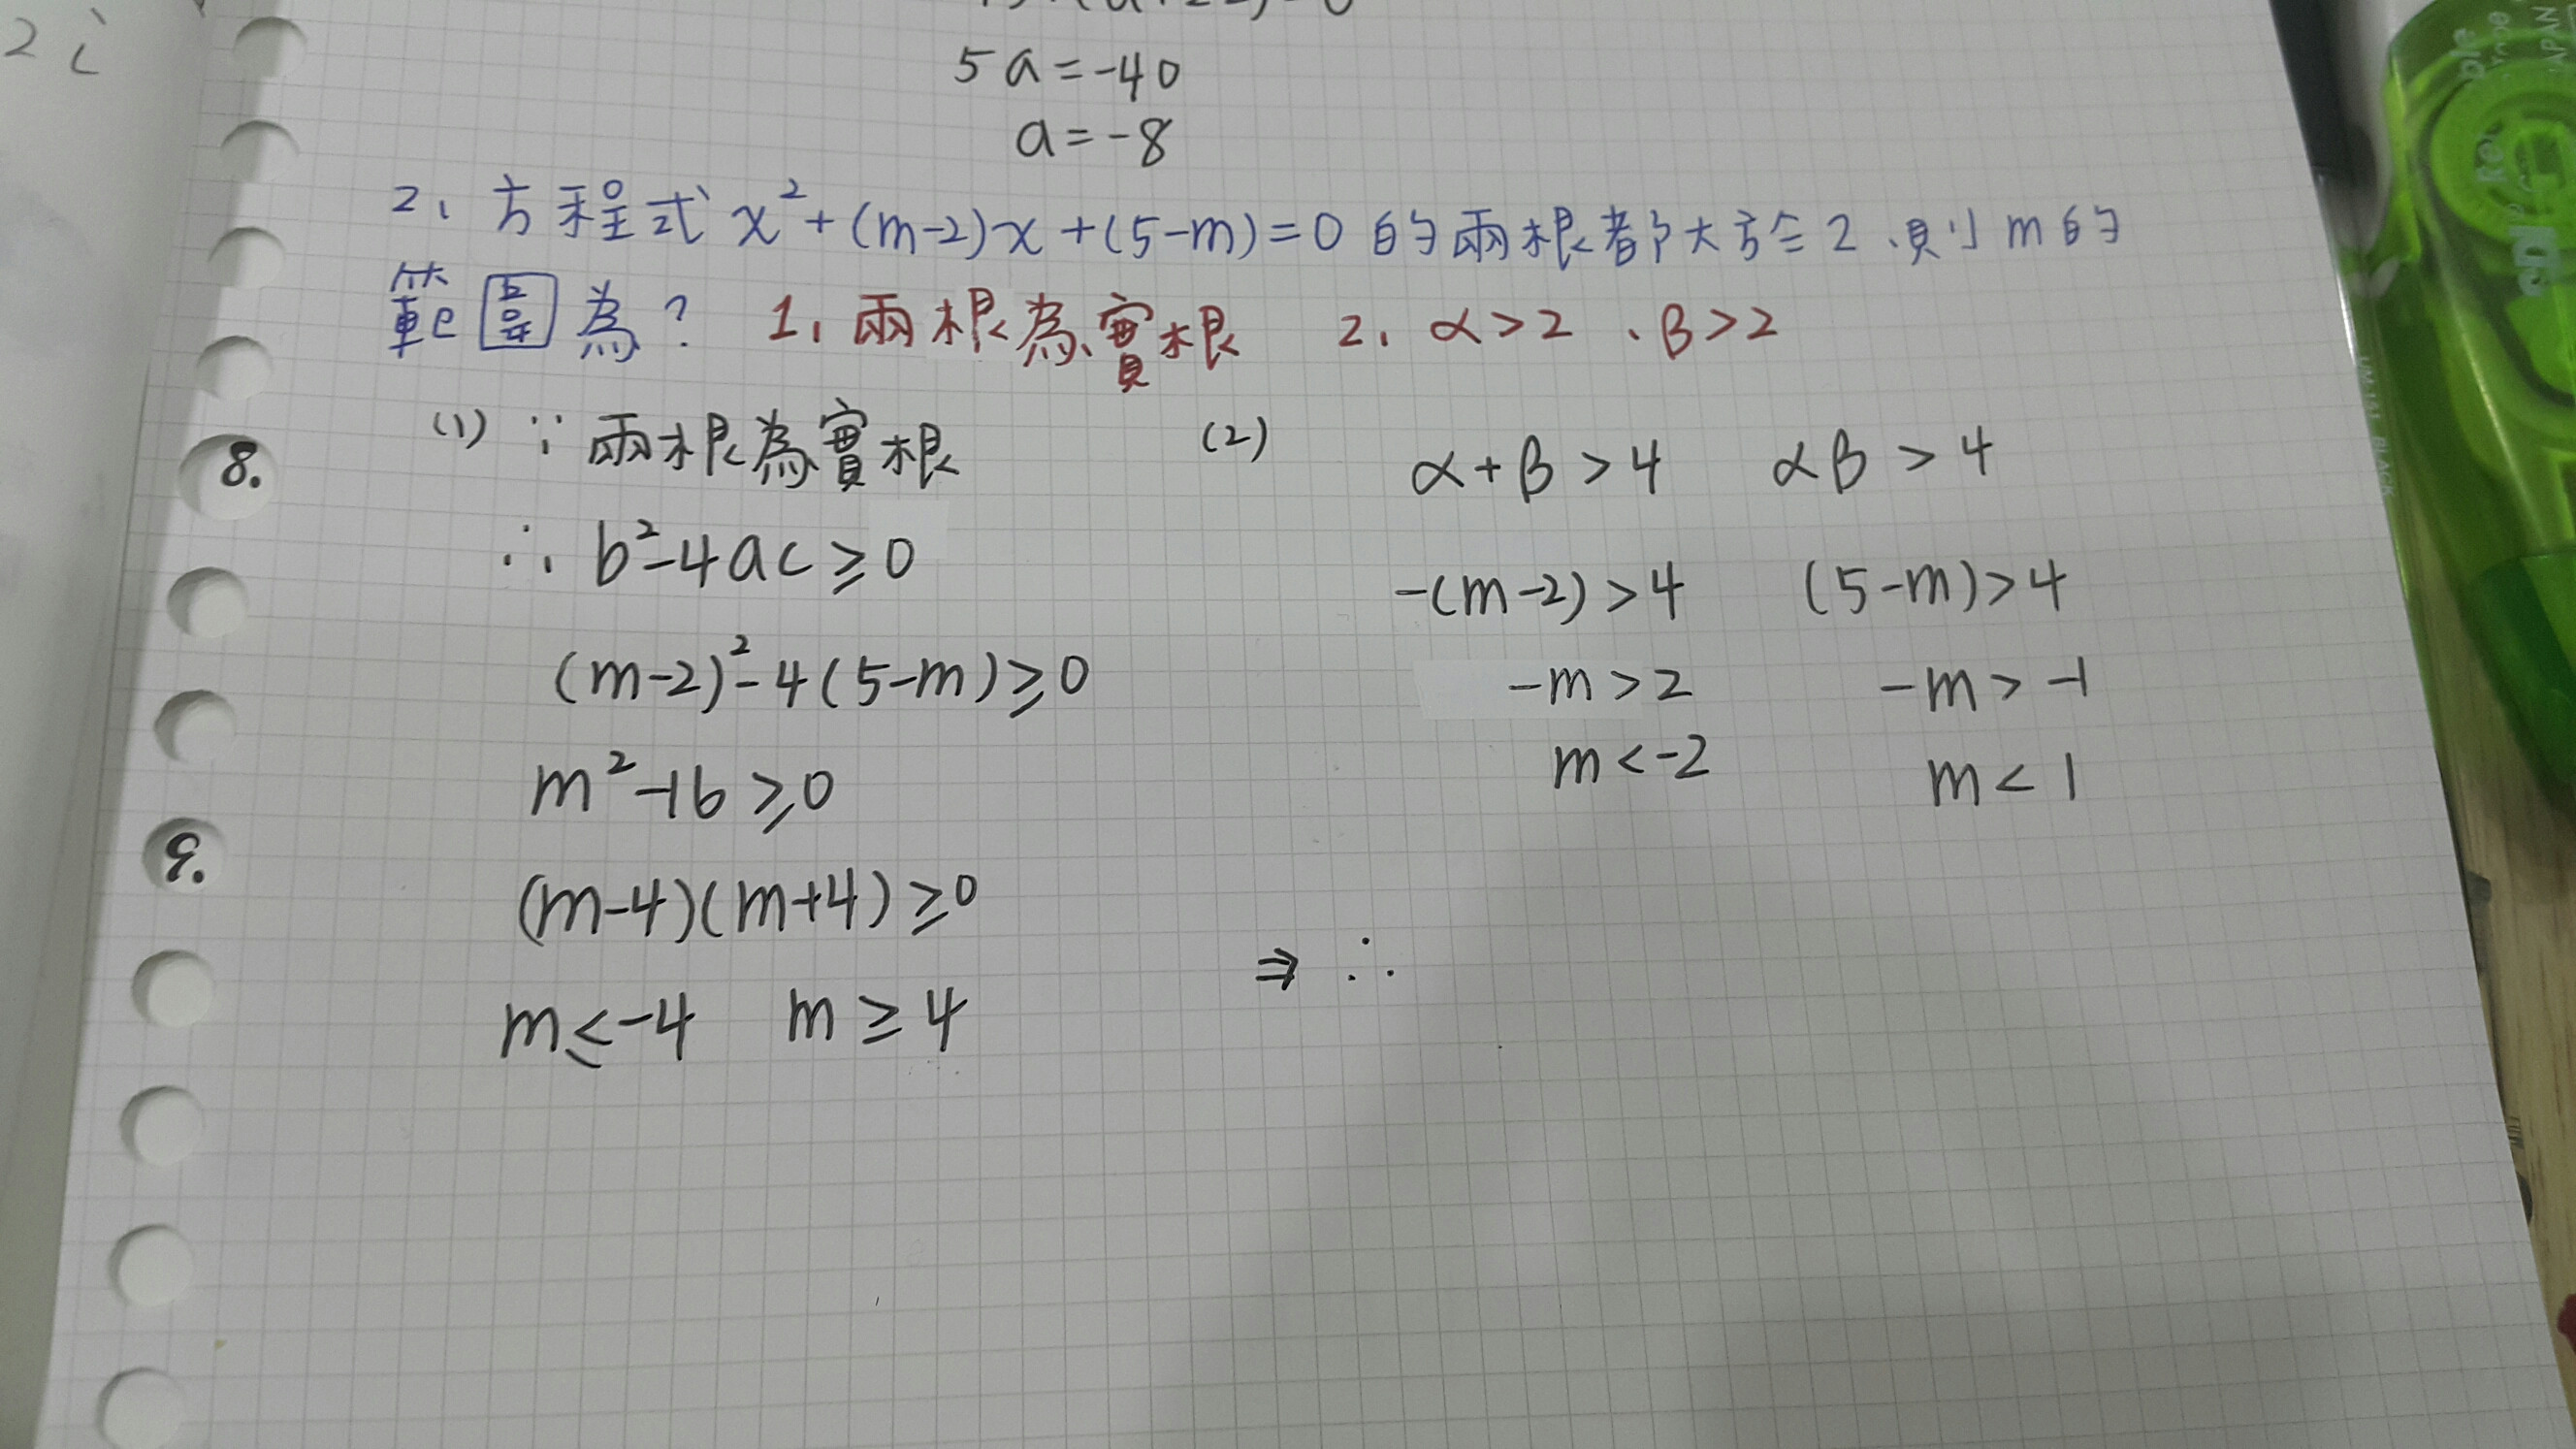 2i
5a=-40
a=-8
2、方程式 x²+(m-2)x+(5-m)=0 的兩根都大於2、則m的
範圍為? 1、兩根為實根 2、α>2、β>2
(1) ∵兩根為實根
(2) α+β>4 αβ>4
8.
∴ b²-4ac≥0
-(m-2)>4 (5-m)>4
(m-2)²-4(5-m)≥0
-m>2 -m>-1
m²-16≥0
m<-2 m<1
9.
(m-4)(m+4)≥0
⇒ ∴
m≤-4 m≥4